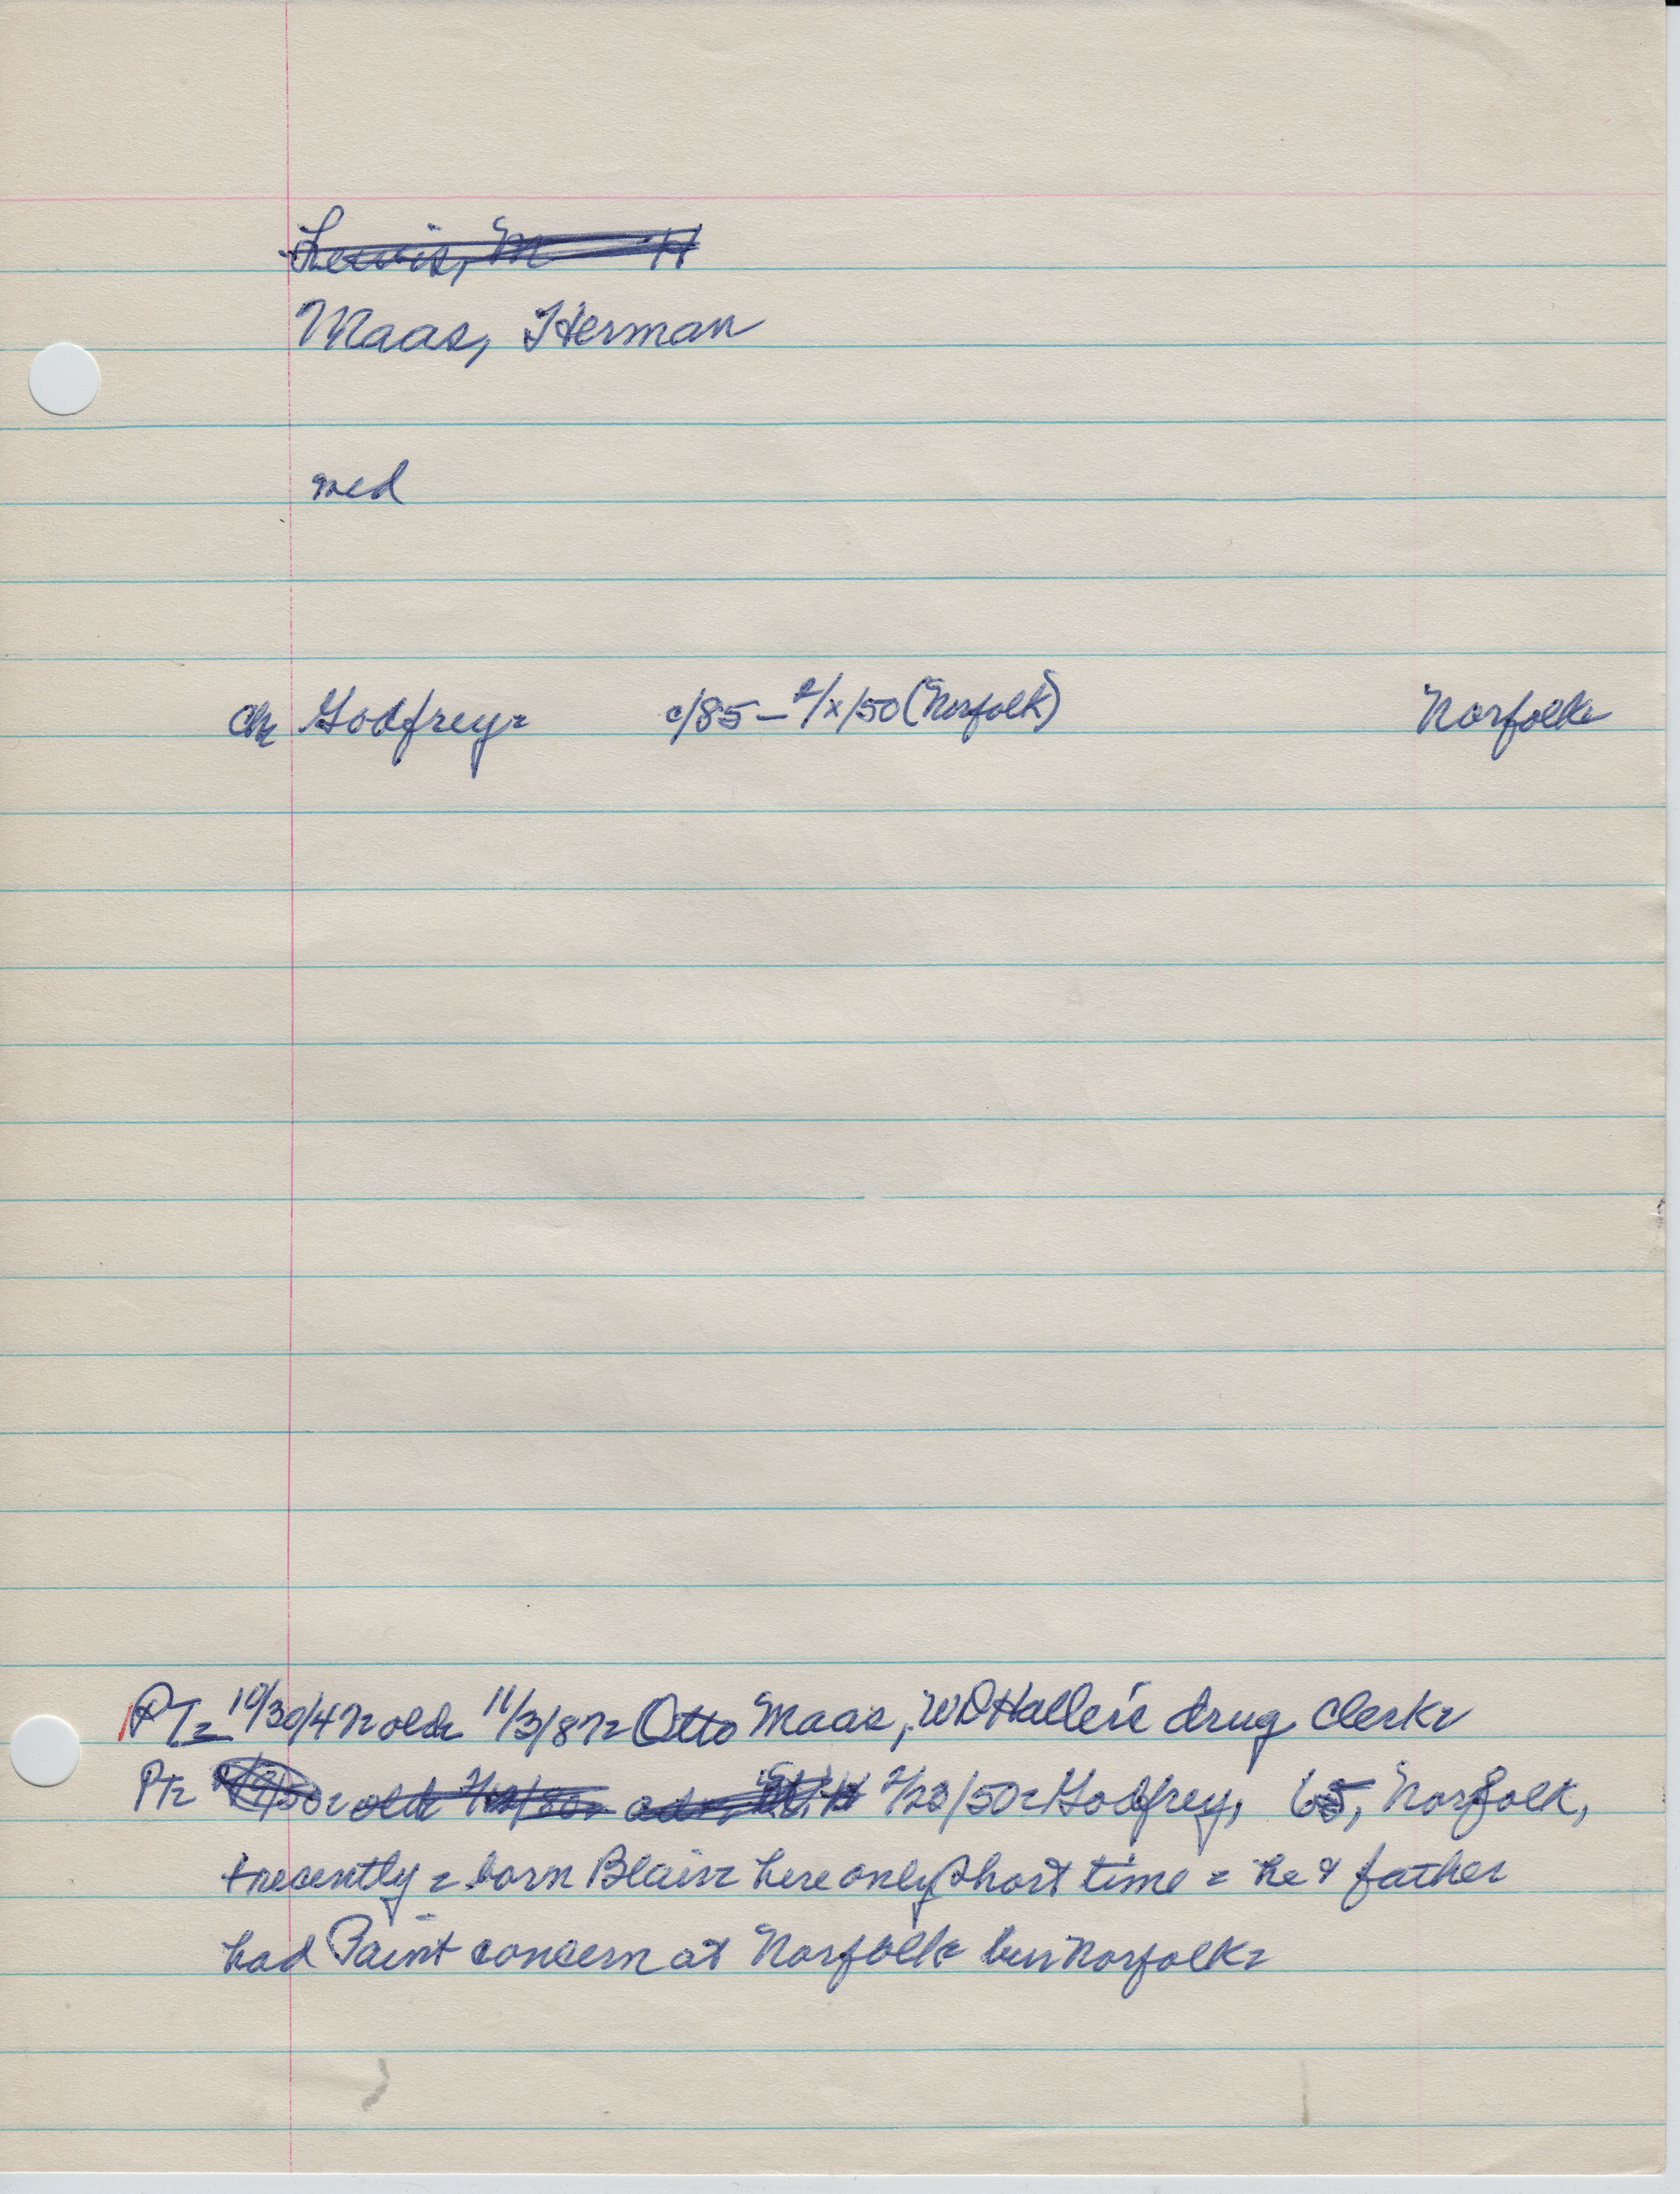 Lewis, M H
Maas, Herman
med
ch Godfrey= c/85 – 2/x/50 (Norfolk) Norfolk
PT= 10/30/47= old= 11/3/87= Otto Maas, WD Haller's drug clerk=
PT= old 2/23/50= Godfrey, 65, Norfolk,
+ recently = born Blair= here only short time = he & father
had Paint concern at Norfolk bur Norfolk=